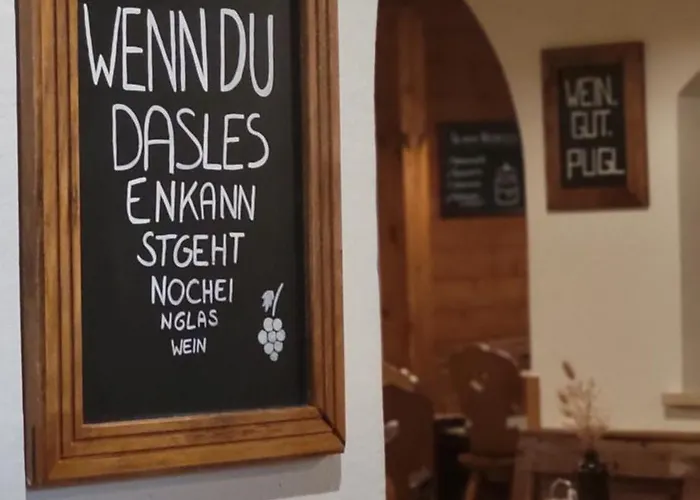 WENN DU
DASLES
ENKANN
STGEHT
NOCHEI
NGLAS
WEIN
WEIN.
GUT.
PUGL